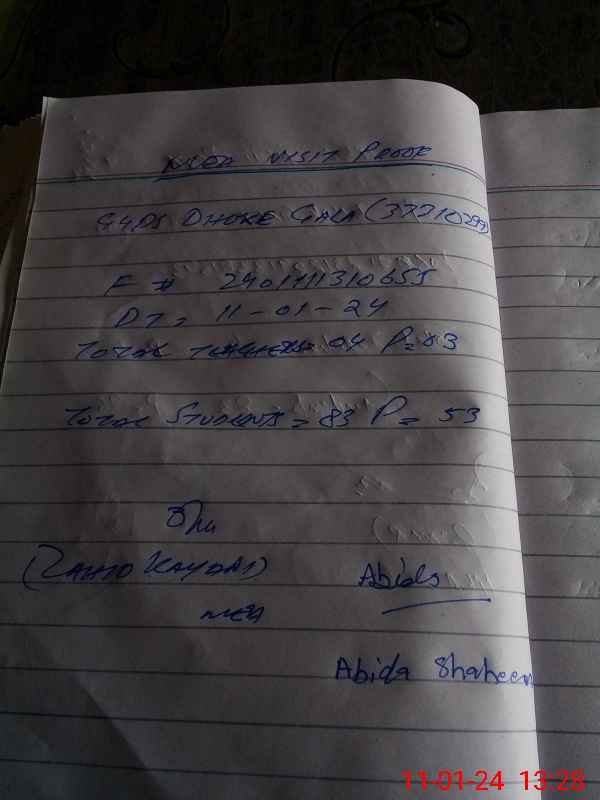 MEA VISIT PROOF
GGPS DHOKE GALA (37210299)
F # 2401111310655
DT, 11-01-24
TOTAL TEACHERS= 04 P=03
TOTAL STUDENTS = 83 P = 53
(ZAHID
MEA
Abida
Abida Shaheen
11-01-24 13:28